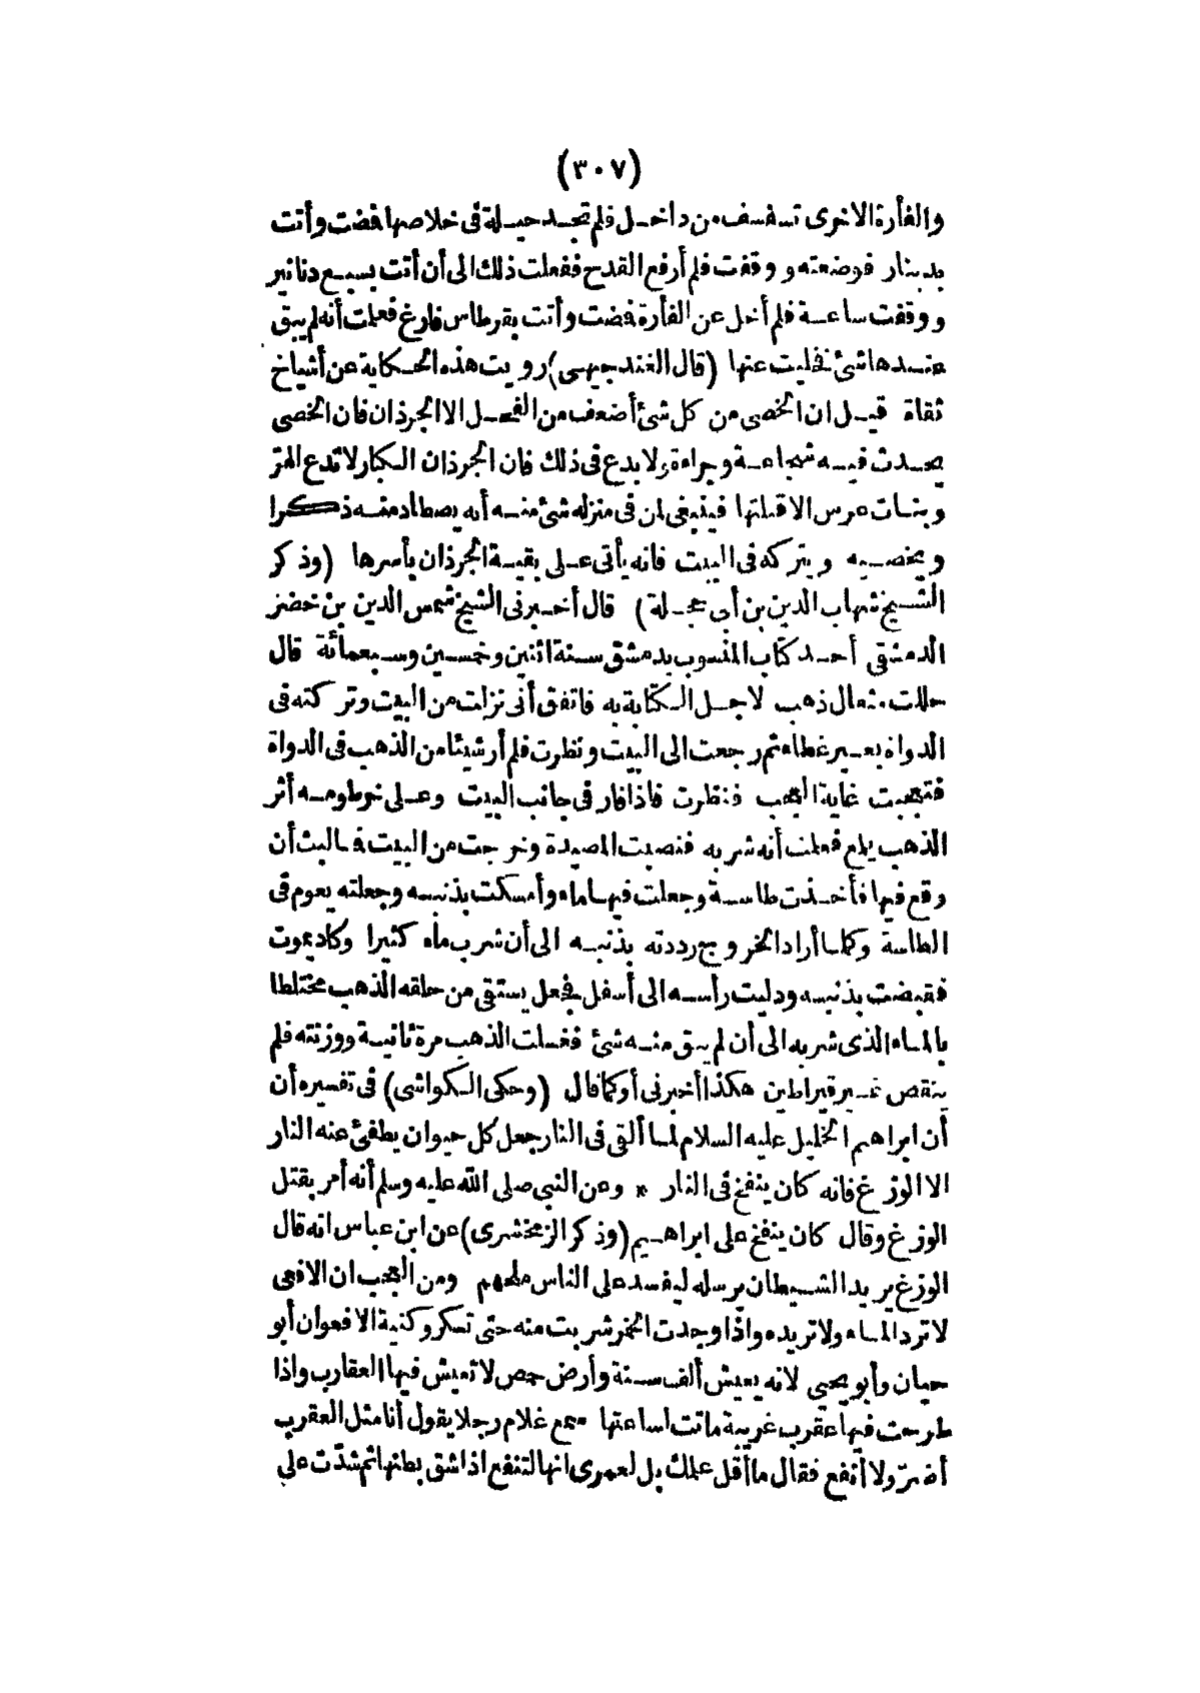 (٣٠٧)
والفأرة الاخرى تسفسف من داخل فلم تجد حيلة فى خلاصها فضت وأتت
بدينار فوضعته و وقفت فلم أرفع القدح ففعلت ذلك الى أن أتت بسبع دنانير
ووقفت ساعة فلم أخل عن الفأرة فضت وأتت بقرطاس فارغ فعلمت أنه لم يبق
عندها شئ فخليت عنها (قال الغندجيهى) رويت هذه الحكاية عن أشياخ
ثقاة قيل ان الخصى من كل شئ أضعف من الفحل الا الجرذان فان الخصى
يحدث فيه شجاعة وجراءة ولا بدع فى ذلك فان الجرذان الكبار لا تدع الهر
وبنات عرس الا قتلتها فينبغى لمن فى منزله شئ منه أنه يصطاد منه ذكرا
ويخصيه ويتركه فى البيت فانه يأتى على بقية الجرذان بأسرها (وذكر
الشيخ شهاب الدين بن أبى حجلة) قال أخبرنى الشيخ شمس الدين بن خضر
الدمشقى أحد كتاب المنسوب بدمشق سنة اثنين وخمسين وسبعمائة قال
حللت مثقال ذهب لاجل الكتابة به فاتفق أنى نزلت من البيت وتركته فى
الدواة بغير غطاء ثم رجعت الى البيت ونظرت فلم أر شيئا من الذهب فى الدواة
فتعجبت غاية العجب فنظرت فاذا فار فى جانب البيت وعلى خرطومه أثر
الذهب يلمع فعلمت أنه شربه فنصبت المصيدة وخرجت من البيت فما لبث أن
وقع فيها فأخذت طاسة وجعلت فيها ماء وأمسكت بذنبه وجعلته يعوم فى
الطاسة وكلما أراد الخروج رددته بذنبه الى أن شرب ماء كثيرا وكاد يموت
فقبضت بذنبه ودليت رأسه الى أسفل فجعل يستقى من حلقه الذهب مختلطا
بالماء الذى شربه الى أن لم يبق منه شئ فغسلت الذهب مرة ثانية ووزنته فلم
ينقص غير قيراطين هكذا أخبرنى أو كما قال (وحكى الكواشى) فى تفسيره أن
أن ابراهيم الخليل عليه السلام لما ألقى فى النار جعل كل حيوان يطفئ عنه النار
الا الوزغ فانه كان ينفخ فى النار * وعن النبى صلى الله عليه وسلم أنه أمر بقتل
الوزغ وقال كان ينفخ على ابراهيم (وذكر الزمخشرى) عن ابن عباس انه قال
الوزغ بريد الشيطان يرسله ليفسد على الناس ملحهم ومن العجب ان الافعى
لا ترد الماء ولا تريده واذا وجدت الخمر شربت منه حتى تسكر وكنية الافعوان أبو
حيان وأبو يحيى لانه يعيش ألف سنة وأرض حمص لا تعيش فيها العقارب واذا
طرحت فيها عقرب غريبة ماتت لساعتها سمع غلام رجلا يقول أنا مثل العقرب
أضر ولا أنفع فقال ما أقل علمك بل لعمرى انها لتنفع اذا شق بطنها ثم شدّت على